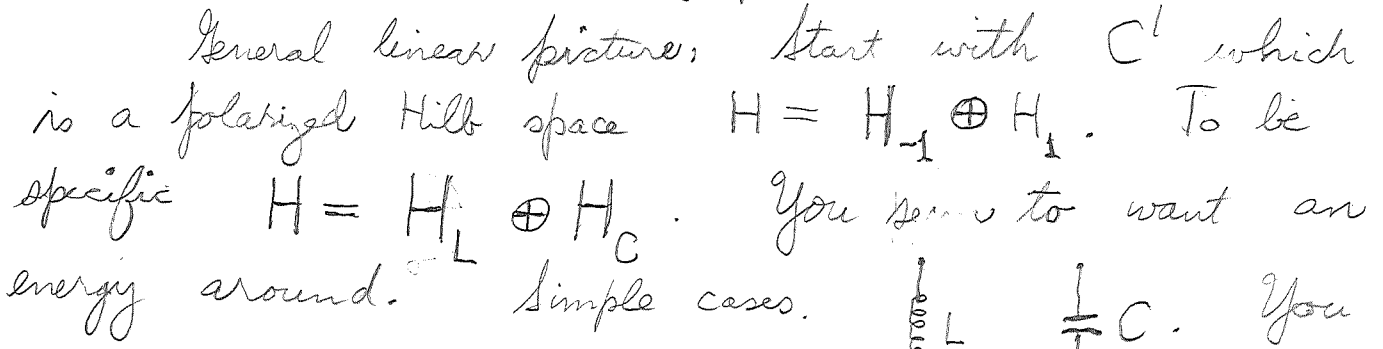 General linear picture: Start with C¹ which
is a polarized Hilb space H = H₋₁ ⊕ H₁. To be
specific H = H_L ⊕ H_C. You to want an
energy around. Simple cases. L C. You